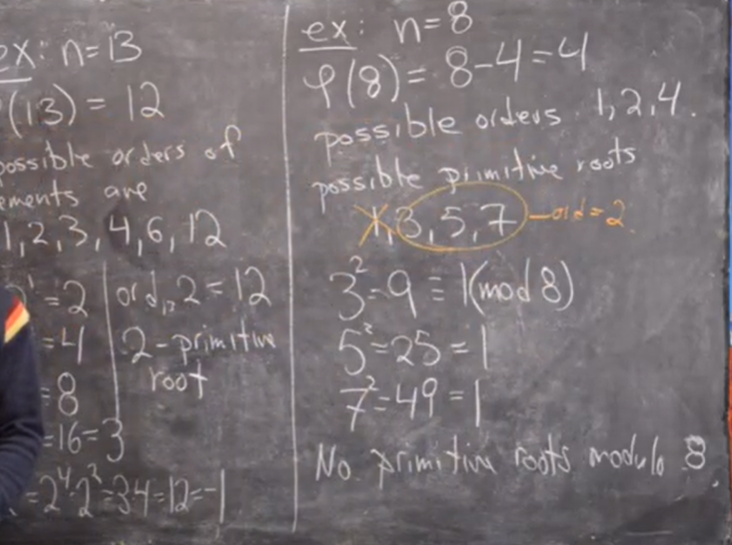 ex: n=13
φ(13) = 12
possible orders of
elements are
1, 2, 3, 4, 6, 12
=2
=4
=8
=16=3
=2⁴·2²=34=12=-1
ord₁₃2=12
2-primitive
root
ex: n=8
φ(8)= 8-4=4
possible orders 1, 2, 4.
possible primitive roots
1, 3, 5, 7 —ord=2
3²=9≡1(mod 8)
5²=25=1
7²=49=1
No primitive roots modulo 8.